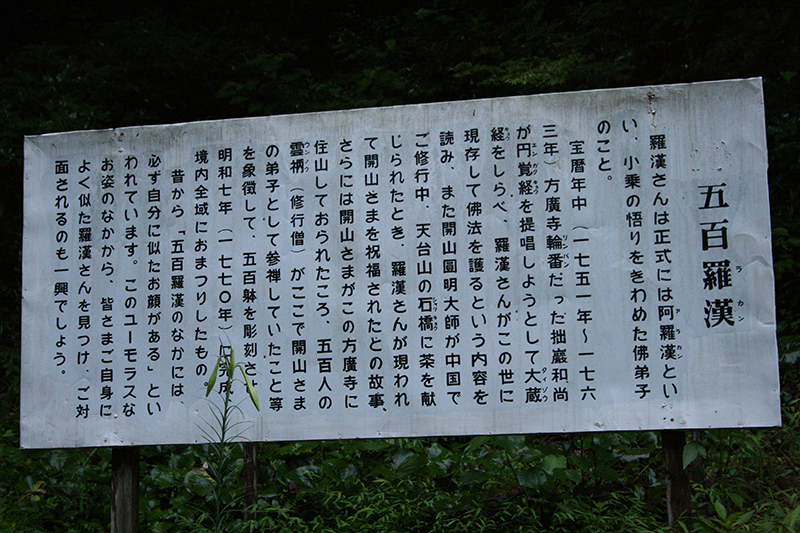 五百羅漢
ラカン
羅漢さんは正式には阿羅漢とい
アラカン
い、小乗の悟りをきわめた佛弟子
のこと。
宝暦年中（一七五一年〜一七六
三年）方廣寺輪番だった拙巖和尚
リンバン
が円覚経を提唱しようとして大蔵
エンガクキョウ
ダイゾウ
経をしらべ、羅漢さんがこの世に
キョウ
現存して佛法を護るという内容を
読み、また開山圓明大師が中国で
ご修行中、天台山の石橋に茶を献
シャッキョウ
じられたとき、羅漢さんが現われ
て開山さまを祝福されたとの故事、
さらには開山さまがこの方廣寺に
住山しておられたころ、五百人の
雲衲（修行僧）がここで開山さま
ウンノウ
の弟子として参禅していたこと等
を象徴して、五百躰を彫刻さ
明和七年（一七七〇年）
境内全域におまつりしたもの。
昔から「五百羅漢のなかには
必ず自分に似たお顔がある」とい
われています。このユーモラスな
お姿のなかから、皆さまご自身に
よく似た羅漢さんを見つけ、ご対
面されるのも一興でしょう。